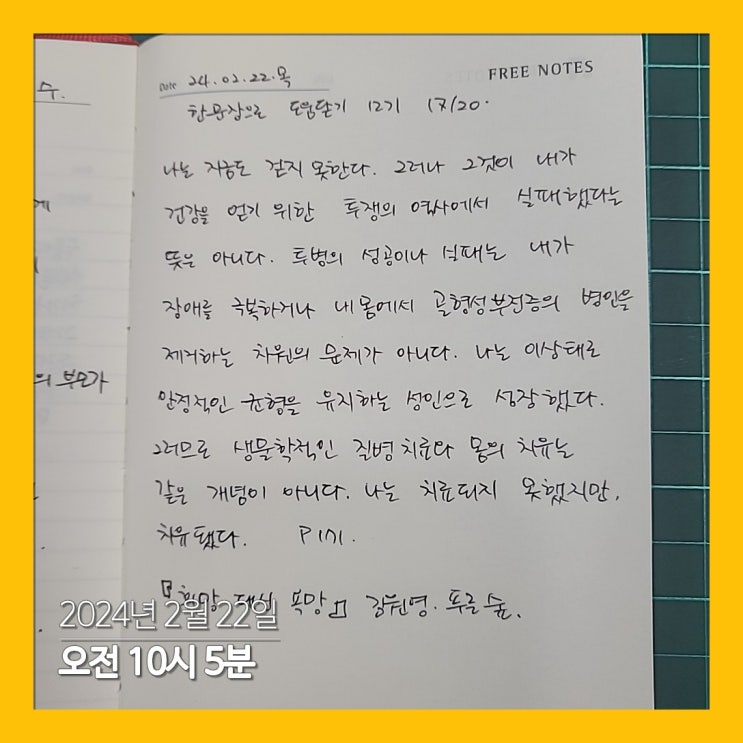 수.
Date 24.02.22.목
FREE NOTES
한문장으로 도움닫기 12기 17/20.
나는 지금도 걷지 못한다. 그러나 그것이 내가
건강을 얻기 위한 투쟁의 역사에서 실패했다는
뜻은 아니다. 투병의 성공이나 실패는 내가
장애를 극복하거나 내 몸에서 골형성부전증의 병인을
제거하는 차원의 문제가 아니다. 나는 이상태로
안정적인 균형을 유지하는 성인으로 성장했다.
그러므로 생물학적인 질병 치료와 몸의 치유는
같은 개념이 아니다. 나는 치료되지 못했지만,
치유됐다. P171.
의 부모가
『희망 대신 욕망』 김원영. 푸른숲.
2024년 2월 22일
오전 10시 5분